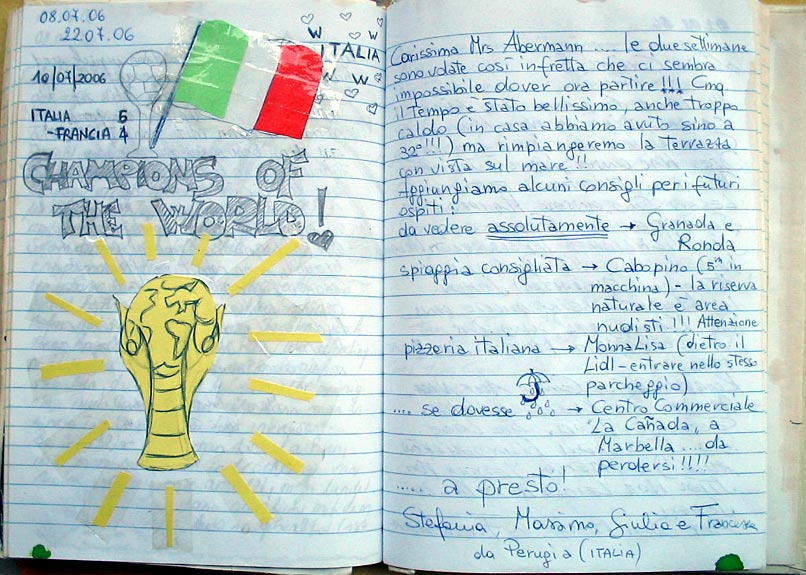 08.07.06
22.07.06
10/07/2006
ITALIA 6
-FRANCIA 4
W ITALIA
W W
CHAMPIONS OF
THE WORLD!
Carissima Mrs Abermann .... le due settimane
sono volate così in fretta che ci sembra
impossibile dover ora partire !!! Cmq
il tempo è stato bellissimo, anche troppo
caldo (in casa abbiamo avuto sino a
32° !!!) ma rimpiangeremo la terrazza
con vista sul mare !!
Aggiungiamo alcuni consigli per i futuri
ospiti:
da vedere assolutamente → Granada e
Ronda
spiaggia consigliata → Cabopino (5m in
macchina) - la riserva
naturale è area
nudisti !!! Attenzione
pizzeria italiana → MonnaLisa (dietro il
Lidl - entrare nello stesso
parcheggio)
.... se dovesse → Centro Commerciale
La Cañada, a
Marbella .... da
perdersi !!!!
..... a presto!
Stefania, Massimo, Giulia e Francesca
da Perugia (ITALIA)